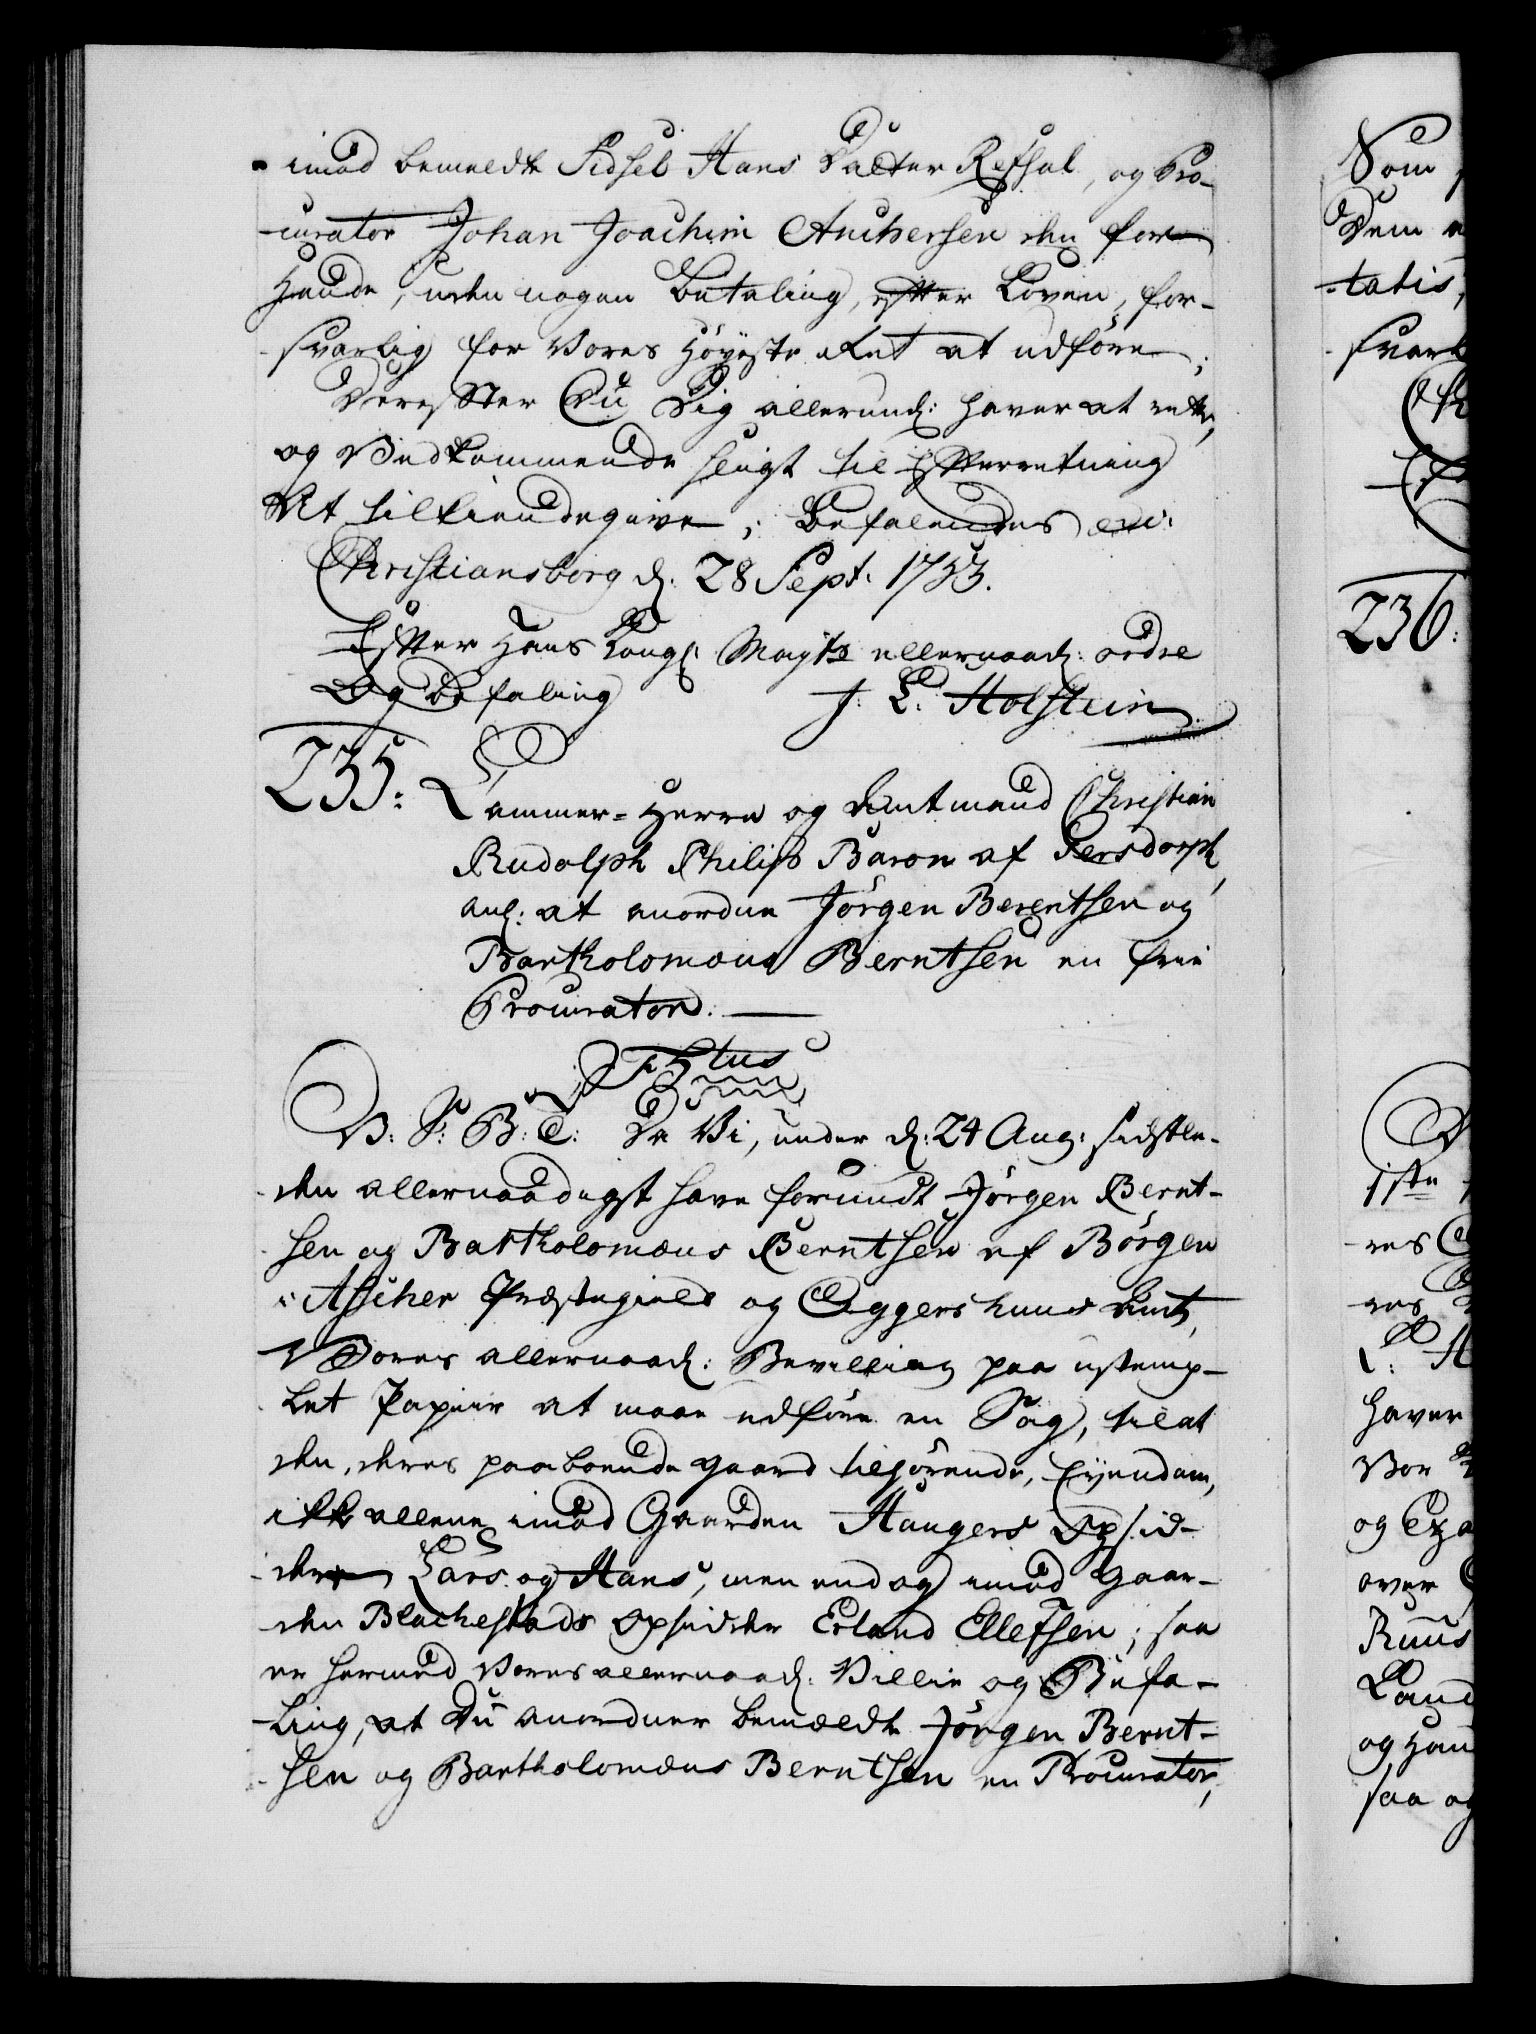 imod bemeldte Sidsel Hans Datter Refsal, og Pro-
-curator Johan Joachim Anchersen den for
Hende, uden nogen Betaling, efter Loven, for-
-svarlig for Vores Höyeste Ret at udföre;
Derefter Du Dig allerund: haver at rette,
og Vedkommende sligt til Efterretning
At tilkiendegive; Befalendes etc:
Christiansborg d: 28 Sept: 1753.
Efter Hans Kongl: Mayts allernaad: ordre
Og Befaling J. L. Holstein
235: Cammer-Herre og Amtmand Christian
Rudolph Philip Baron af Gersdorph,
anl: at anordne Jörgen Berentsen og
Bartholomæus Berntsen en frie
Procurator.
Fr 5tus
V: S: B: T: Da Vi, under d: 24 Aug: sidstle-
-den allernaadigst have forundt Jörgen Bernt-
-sen og Bartholomæus Berntsen af Börgen
i Ascher Præstegield og Aggershuus Amt,
Vores allernaad: Bevilling paa ustemp-
let Papiir at maae udföre en Sag, til at
den, deres paaboende Gaard tilhörende, Eyendom,
ikke allene imod Gaarden Haugers Opsid-
-dere Lars og Hans, men end og imod Gaar-
-den Blachestads Opsidder Erland Ellefsen; saa
er hermed Vores allernaad: Villie og Befa-
-ling, at Du anordner bemeldte Jörgen Bernt-
-sen og Bartholomæus Berntsen en Procurator,
Som
Dem
-tatis,
236:
1ste
haver
Vor
og
over
Ruus
Land
og
saa og